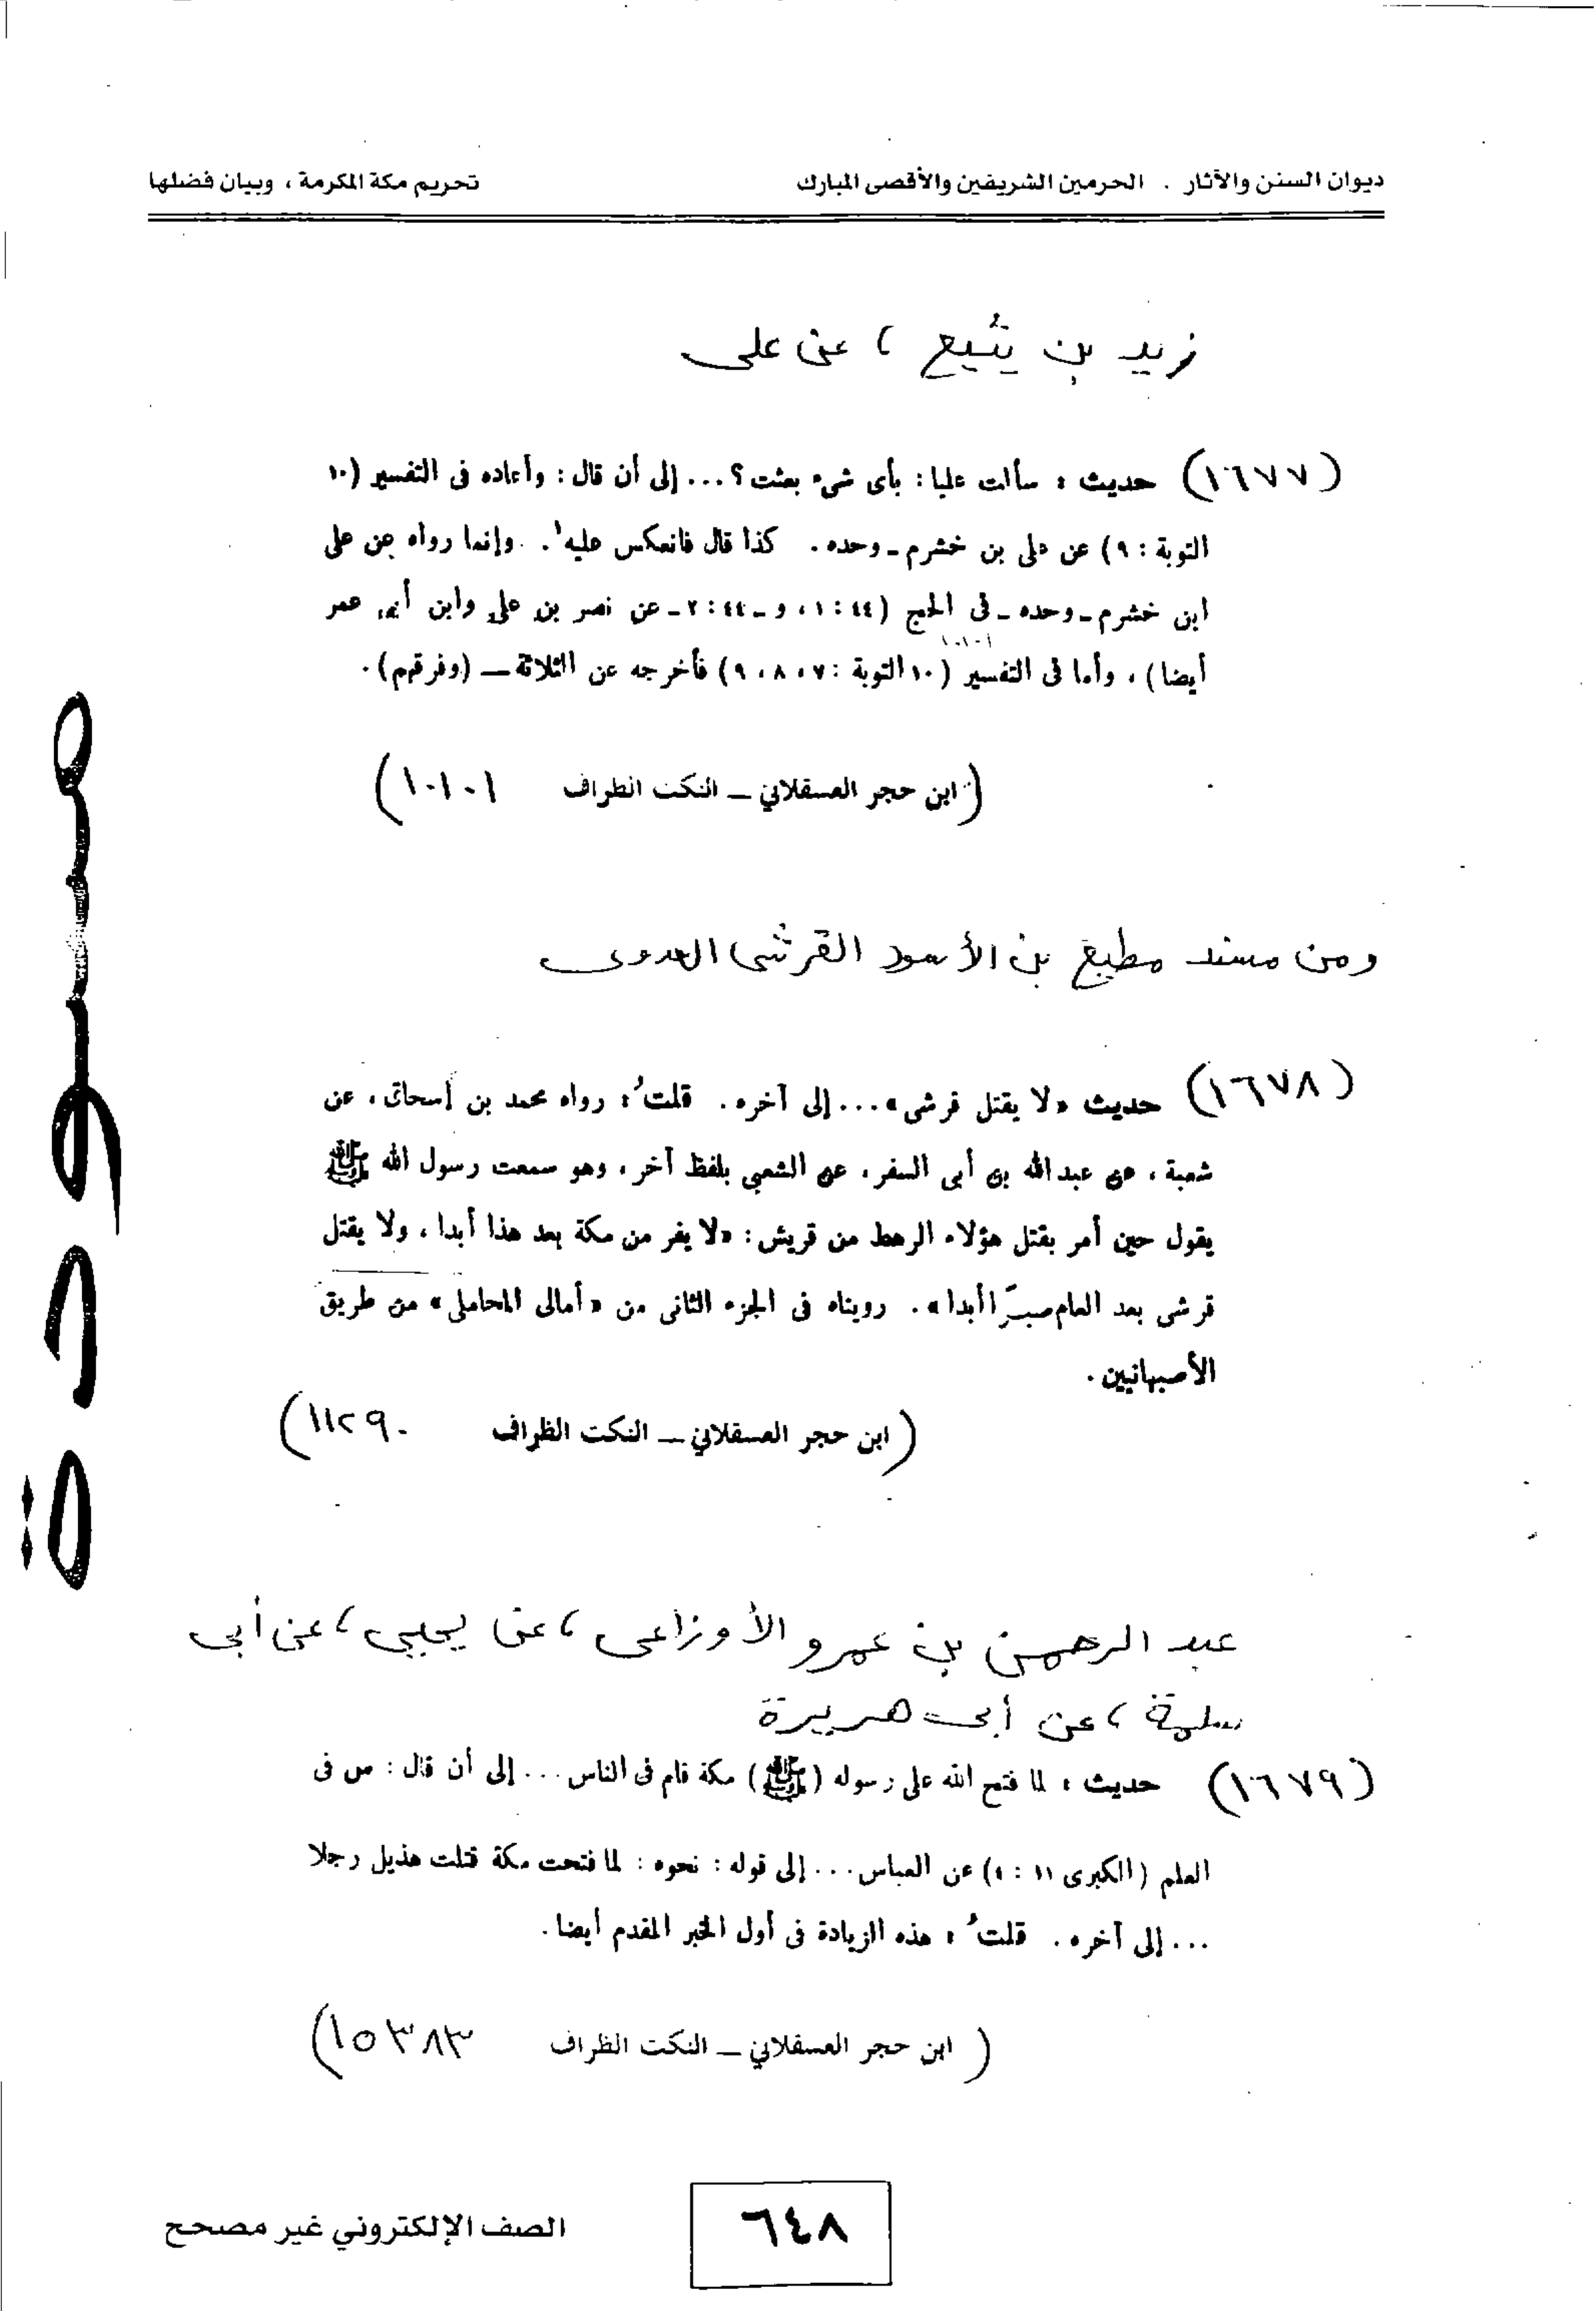 ديوان السنن والآثار . الحرمين الشريفين والأقصى المبارك تحريم مكة المكرمة ، وبيان فضلها
زيد بن يُثيع ، عن على
(١٦٧٧) حديث : سألت عليا : بأى شىء بعثت ؟ ... إلى أن قال : وأعاده فى التفسير (١٠
التوبة : ٩) عن على بن خشرم ـ وحده . كذا قال فانعكس عليه١ . وإنما رواه عن على
ابن خشرم ـ وحده ـ فى الحج (٤٤ : ١ ، و ـ ٤٤ : ٢ ـ عن نصر بن على وابن أبى عمر
أيضا) ، وأما فى التفسير (١٠ التوبة : ٧ ، ٨ ، ٩) فأخرجه عن الثلاثة ــ (وفرقهم) .
(ابن حجر العسقلاني ــ النكت الظراف ١٠١٠١)
ومن مسند مطيع بن الأسود القرشى العدوى
(١٦٧٨) حديث «لا يقتل قرشى» ... إلى آخره . قلتُ : رواه محمد بن إسحاق ، عن
شعبة ، عن عبد الله بن أبى السفر ، عن الشعبي بلفظ آخر ، وهو سمعت رسول الله ﷺ
يقول حين أمر بقتل هؤلاء الرهط من قريش : «لا يغر من مكة بعد هذا أبدا ، ولا يقتل
قرشى بعد العام صبرًا أبدا» . رويناه فى الجزء الثانى من «أمالى المحاملى» من طريق
الأصبهانيين .
(ابن حجر العسقلاني ــ النكت الظراف ١١٢٩٠)
عبد الرحمن بن عمرو الأوزاعى ، عن يحيى ، عن أبى
سلمة ، عن أبى هريرة
(١٦٧٩) حديث : لما فتح الله على رسوله (ﷺ) مكة قام فى الناس ... إلى أن قال : س فى
العلم (الكبرى ١١ : ٤) عن العباس ... إلى قوله : نحوه : لما فتحت مكة قتلت هذيل رجلا
... إلى آخره . قلتُ : هذه الزيادة فى أول الخبر المقدم أيضا .
(ابن حجر العسقلاني ــ النكت الظراف ١٥٣٨٣)
مسودة
٦٤٨
الصف الإلكتروني غير مصحح